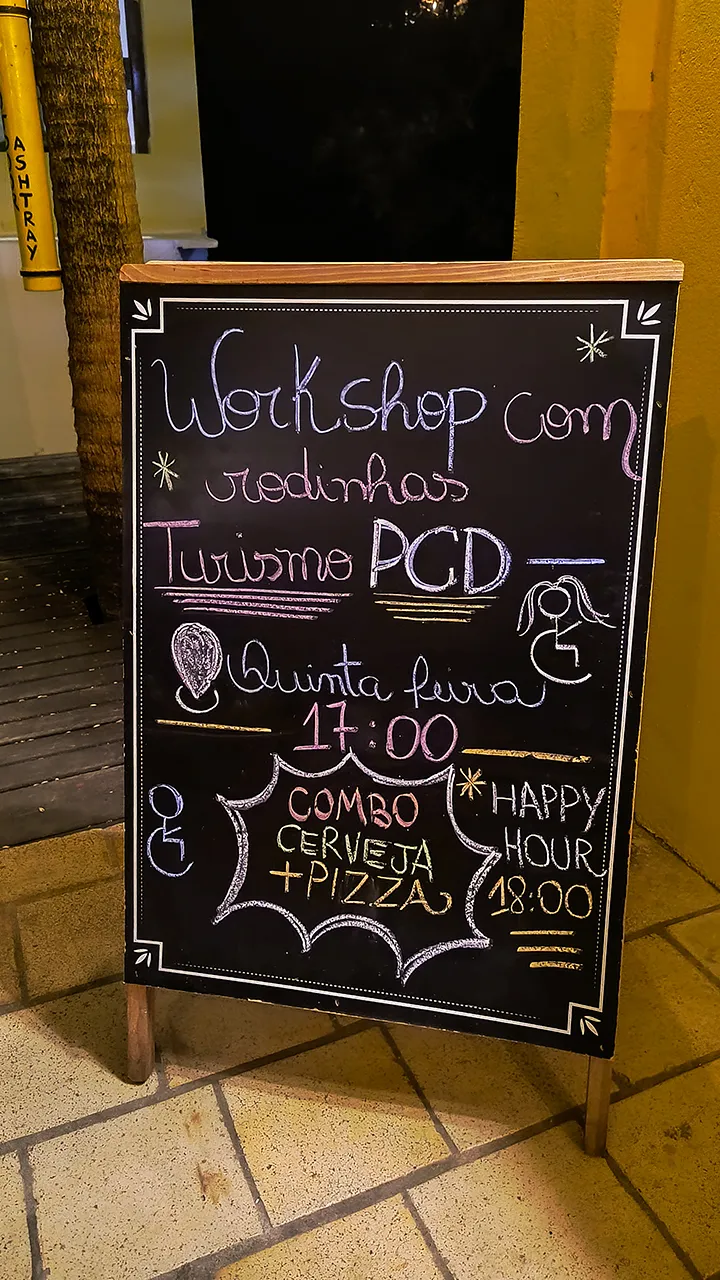 ASHTRAY
Workshop com
rodinhas
Turismo PCD
Quinta feira
17:00
COMBO
CERVEJA
+PIZZA
HAPPY
HOUR
18:00